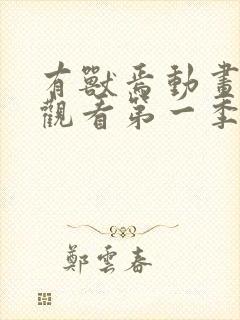 有獸焉動畫
觀看第一季
鄭雲春